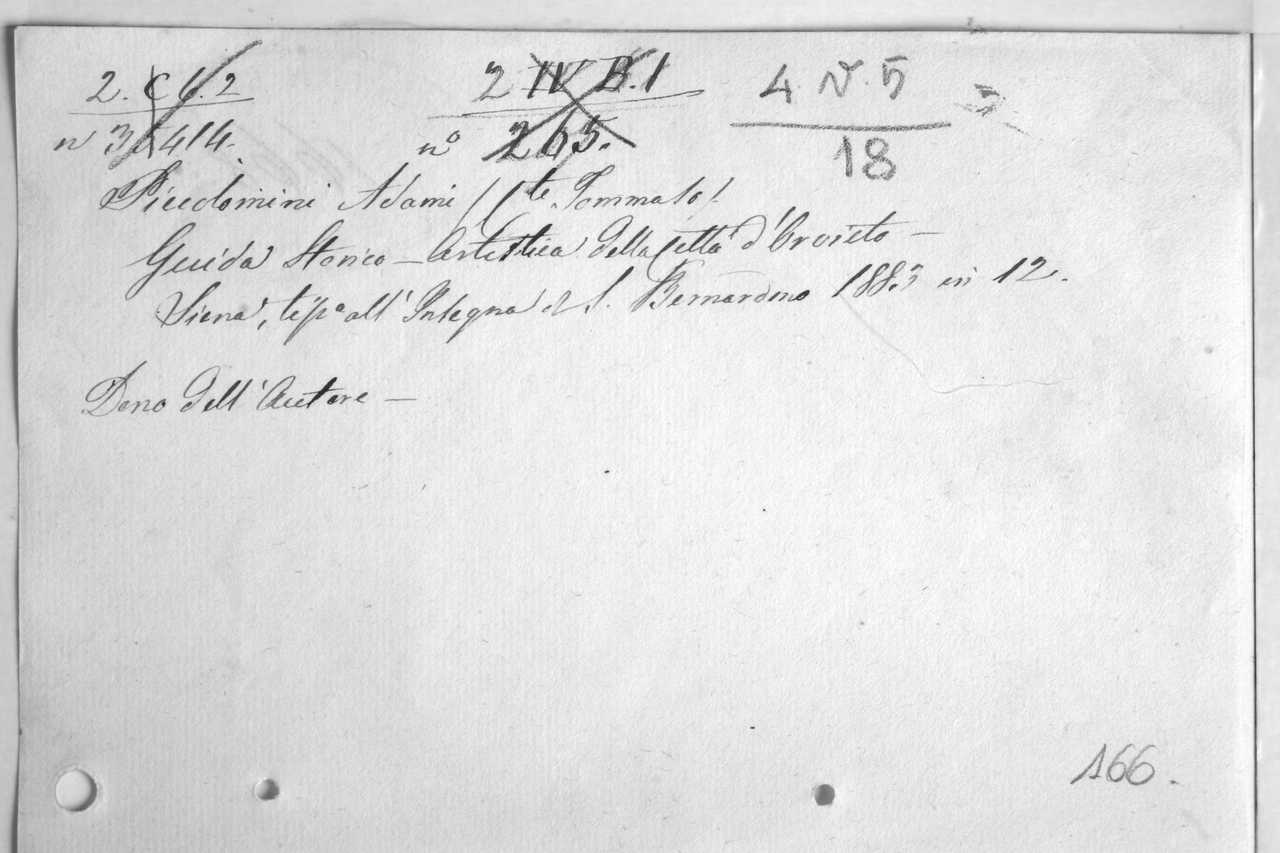 2. C V. 2
2 IV B.1
4 V. 5
n 3 414.
nº 265.
18
Piccolomini Adami (Cte. Tommaso)
Guida Storico – Artistica della Città d'Orvieto –
Siena, tipª all' Insegna di S. Bernardino 1883 in 12.
Dono dell' Autore –
166.